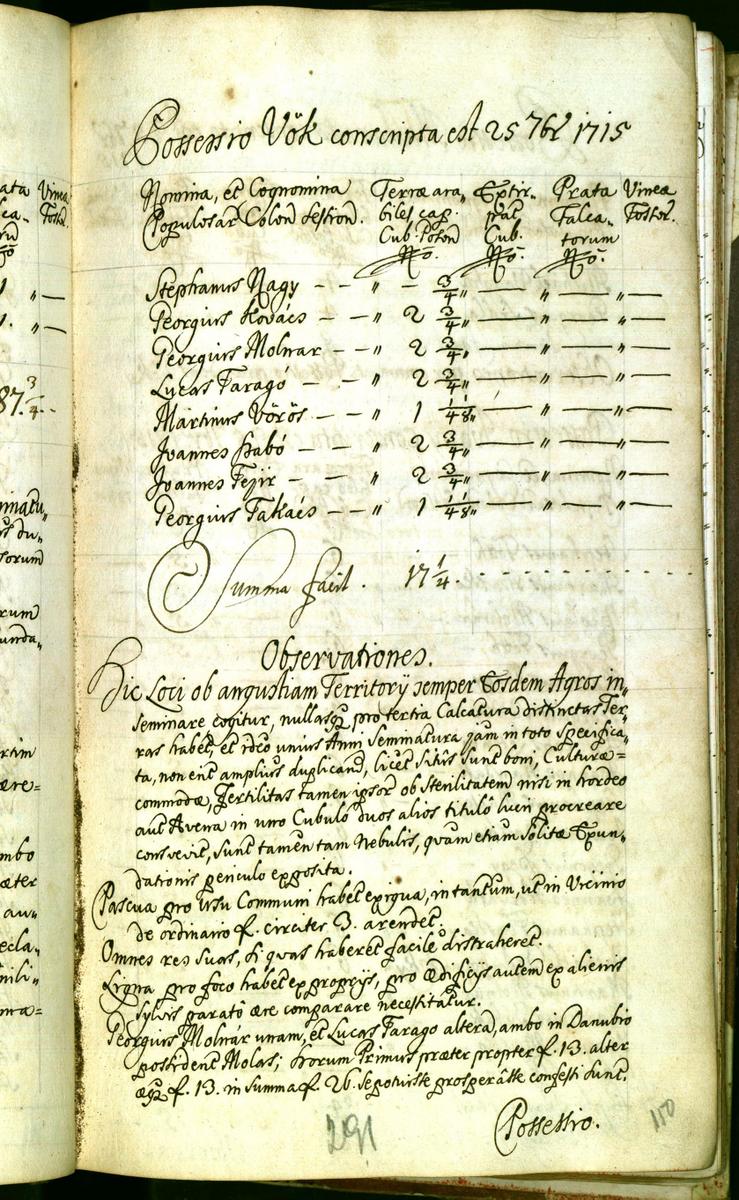 Possessio Vök conscripta est 25 7br 1715
Nomina, et Cognomina Terræ ara- Extir- Prata Vineæ
Populosar Colon Sestion. biles cap. pat Falca- Fossor.
Cub. Poson Cub. torum
No. No. No.
Stephanus Nagy — — " — 3/4 " — " — " —
Georgius Kovács — — " 2 3/4 " — " — " —
Georgius Molnar — — " 2 3/4 " — " — " —
Lucas Faragó — — " 2 3/4 " — " — " —
Martinus Vörös — — " 1 1/4 1/8 " — " — " —
Joannes Szabó — — " 2 3/4 " — " — " —
Joannes Fejir — — " 2 3/4 " — " — " —
Georgius Takács — — " 1 1/4 1/8 " — " — " —
Summa facit. 17 1/4.
Observationes.
Hic Loci ob angustiam Territorij semper Eosdem Agros in„
seminare cogitur, nullasq3 pro tertia Calcatura distinctas Ter„
ras habet, et ideo unius Anni Seminatura jam in toto specifica„
ta, non erit amplius duplicand, licet sitûs sunt boni, Culturæ=
commodæ, Fertilitas tamen ipsor ob Sterilitatem nisi in hordeo
aut Avena in uno Cubulo duos alios titulô lucri procreare
consvevit, sunt tamen tam Nebulis, quam etiam solitæ Exun„
dationis periculo exposita.
Pascua pro Usu Communi habet exigua, in tantum, ut in Vicinio
de ordinario f. circiter 3. arendet.
Omnes res suas, si quas haberet facile distraheret.
Ligna pro foco habet ex proprijs, pro ædificijs autem ex alienis
sylvis paratô ære comparare necessitatur.
Georgius Molnár unam, et Lucas Farago alterã, ambo in Danubio
possident Molas; horum Primus præter propter f. 13. alter
æq3 f. 13. in summa f. 26. se potuisse prosperâsse confessi sunt.
Possessio.
291
110